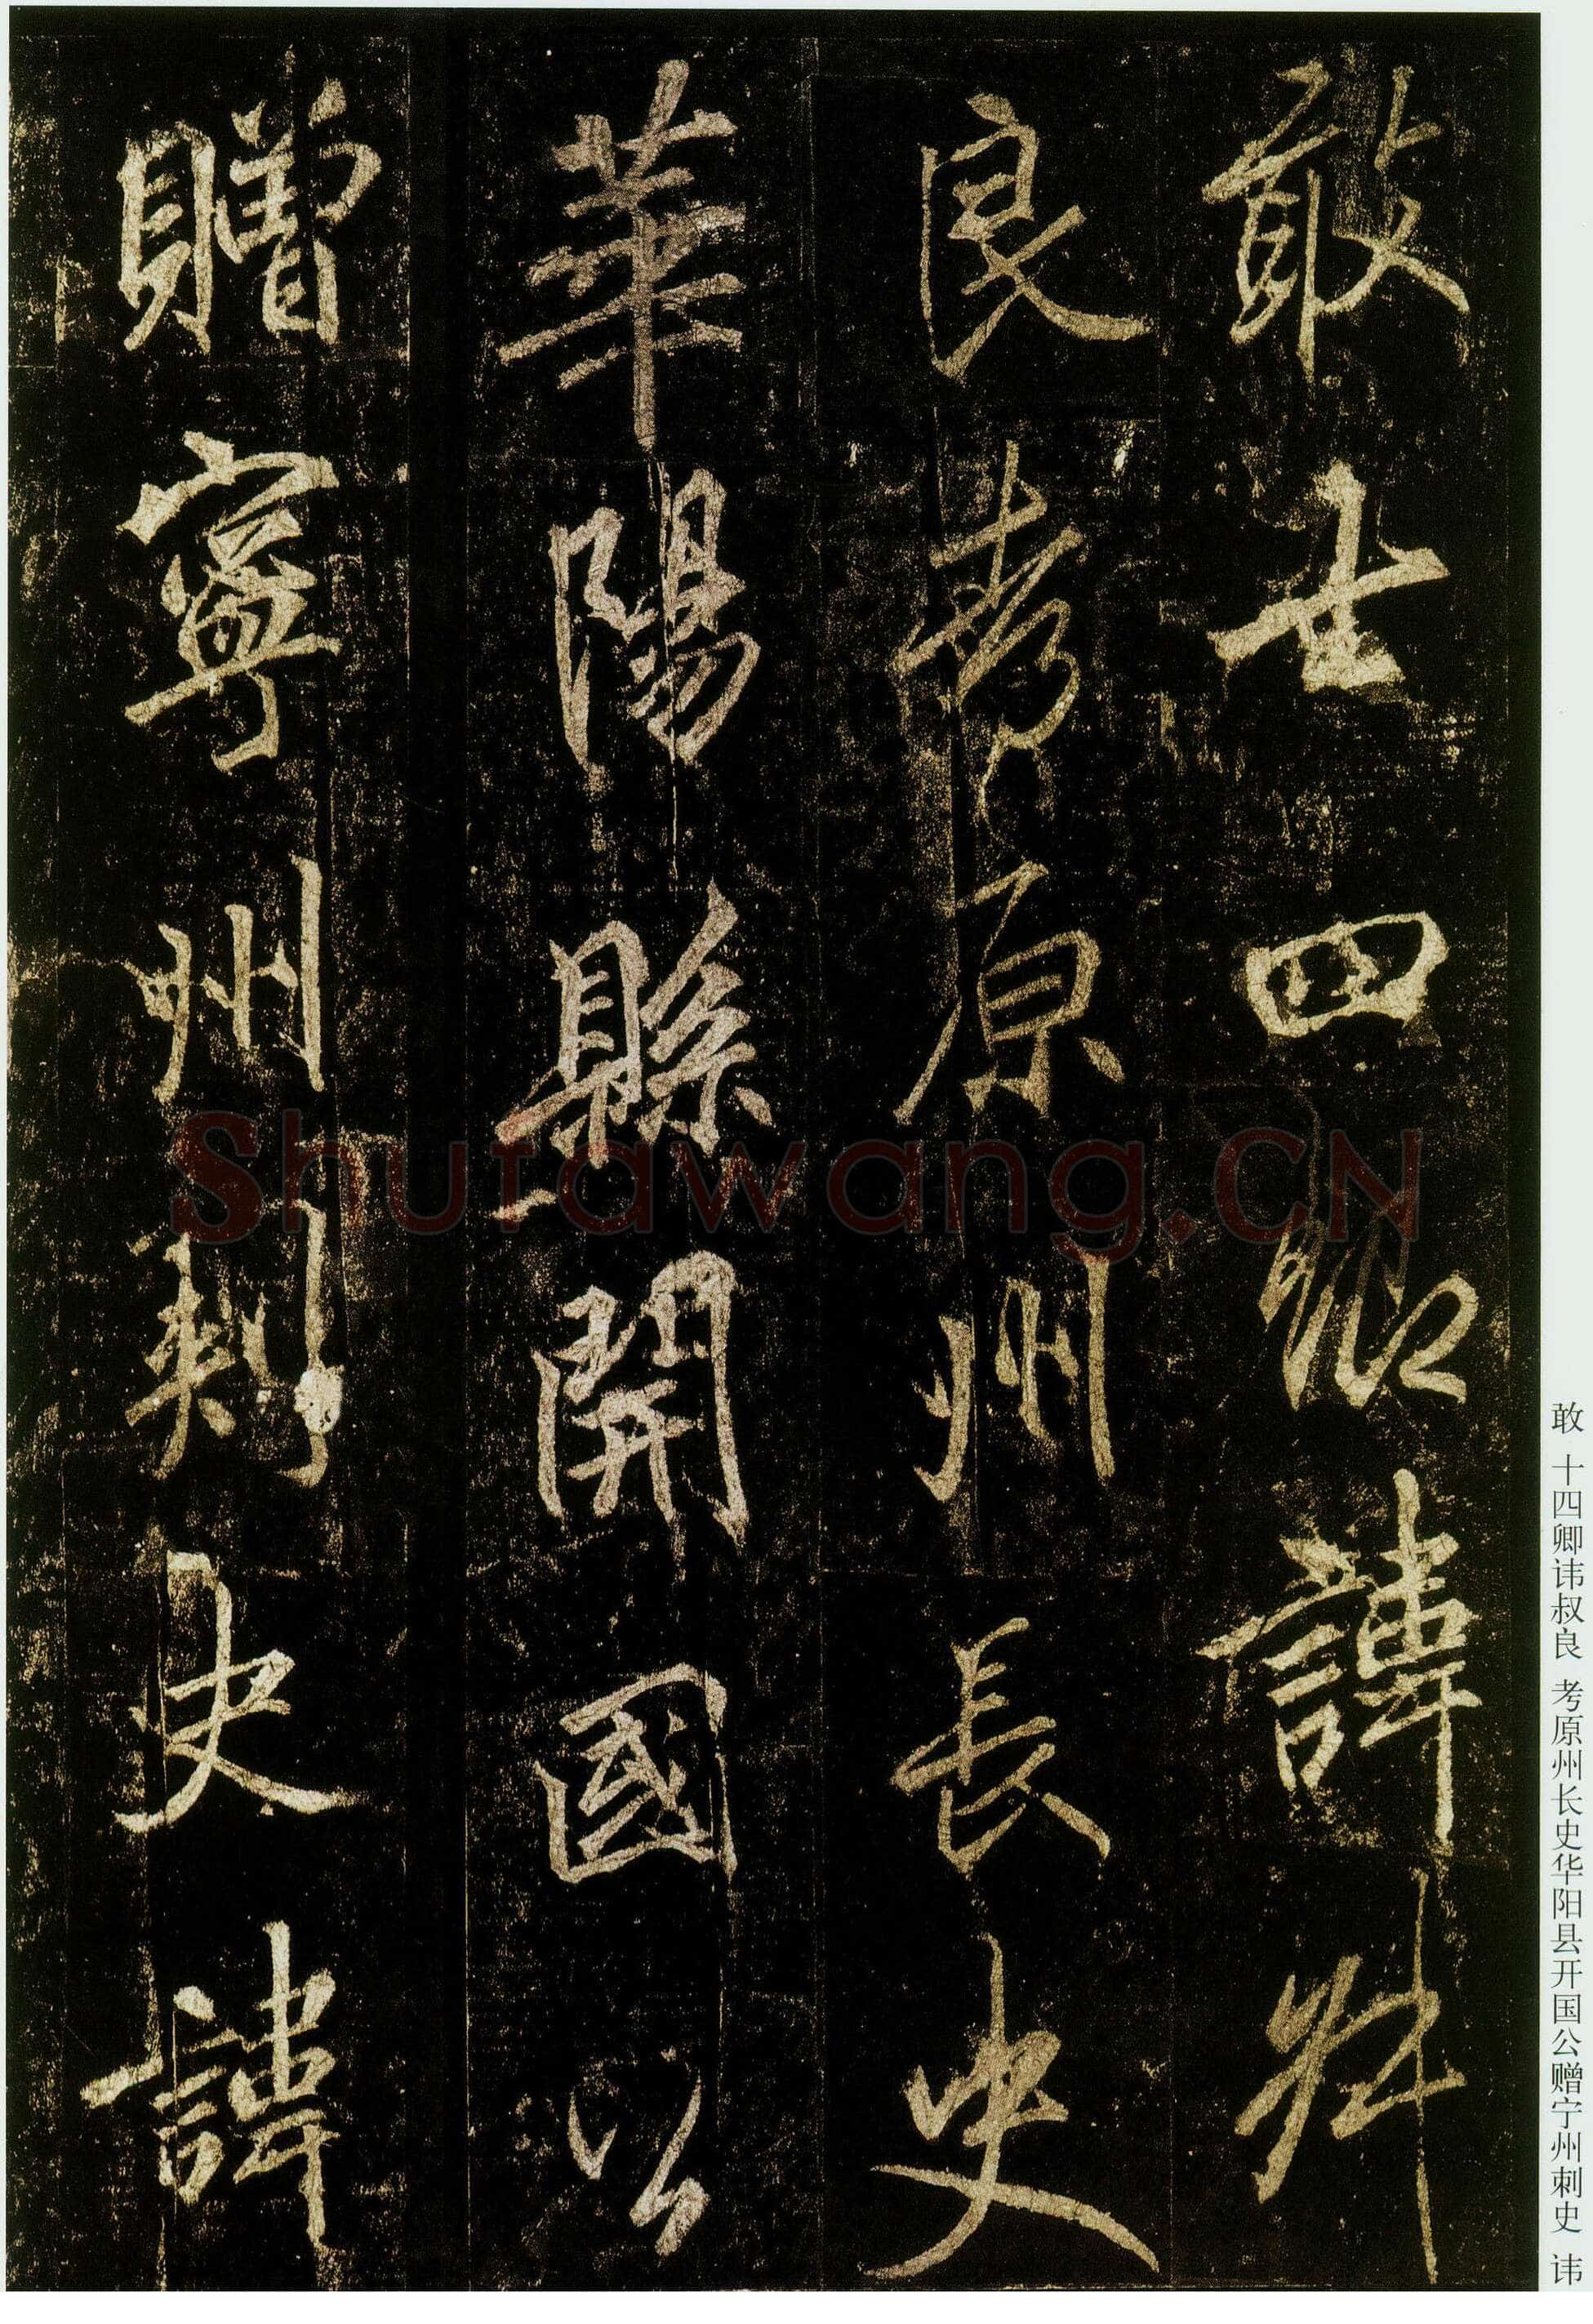 敢四卿諱叔
良考原州長史
華陽縣開國公
贈寧州刺史諱
敢 十四卿讳叔良 考原州长史华阳县开国公赠宁州刺史 讳
Shufawang.CN